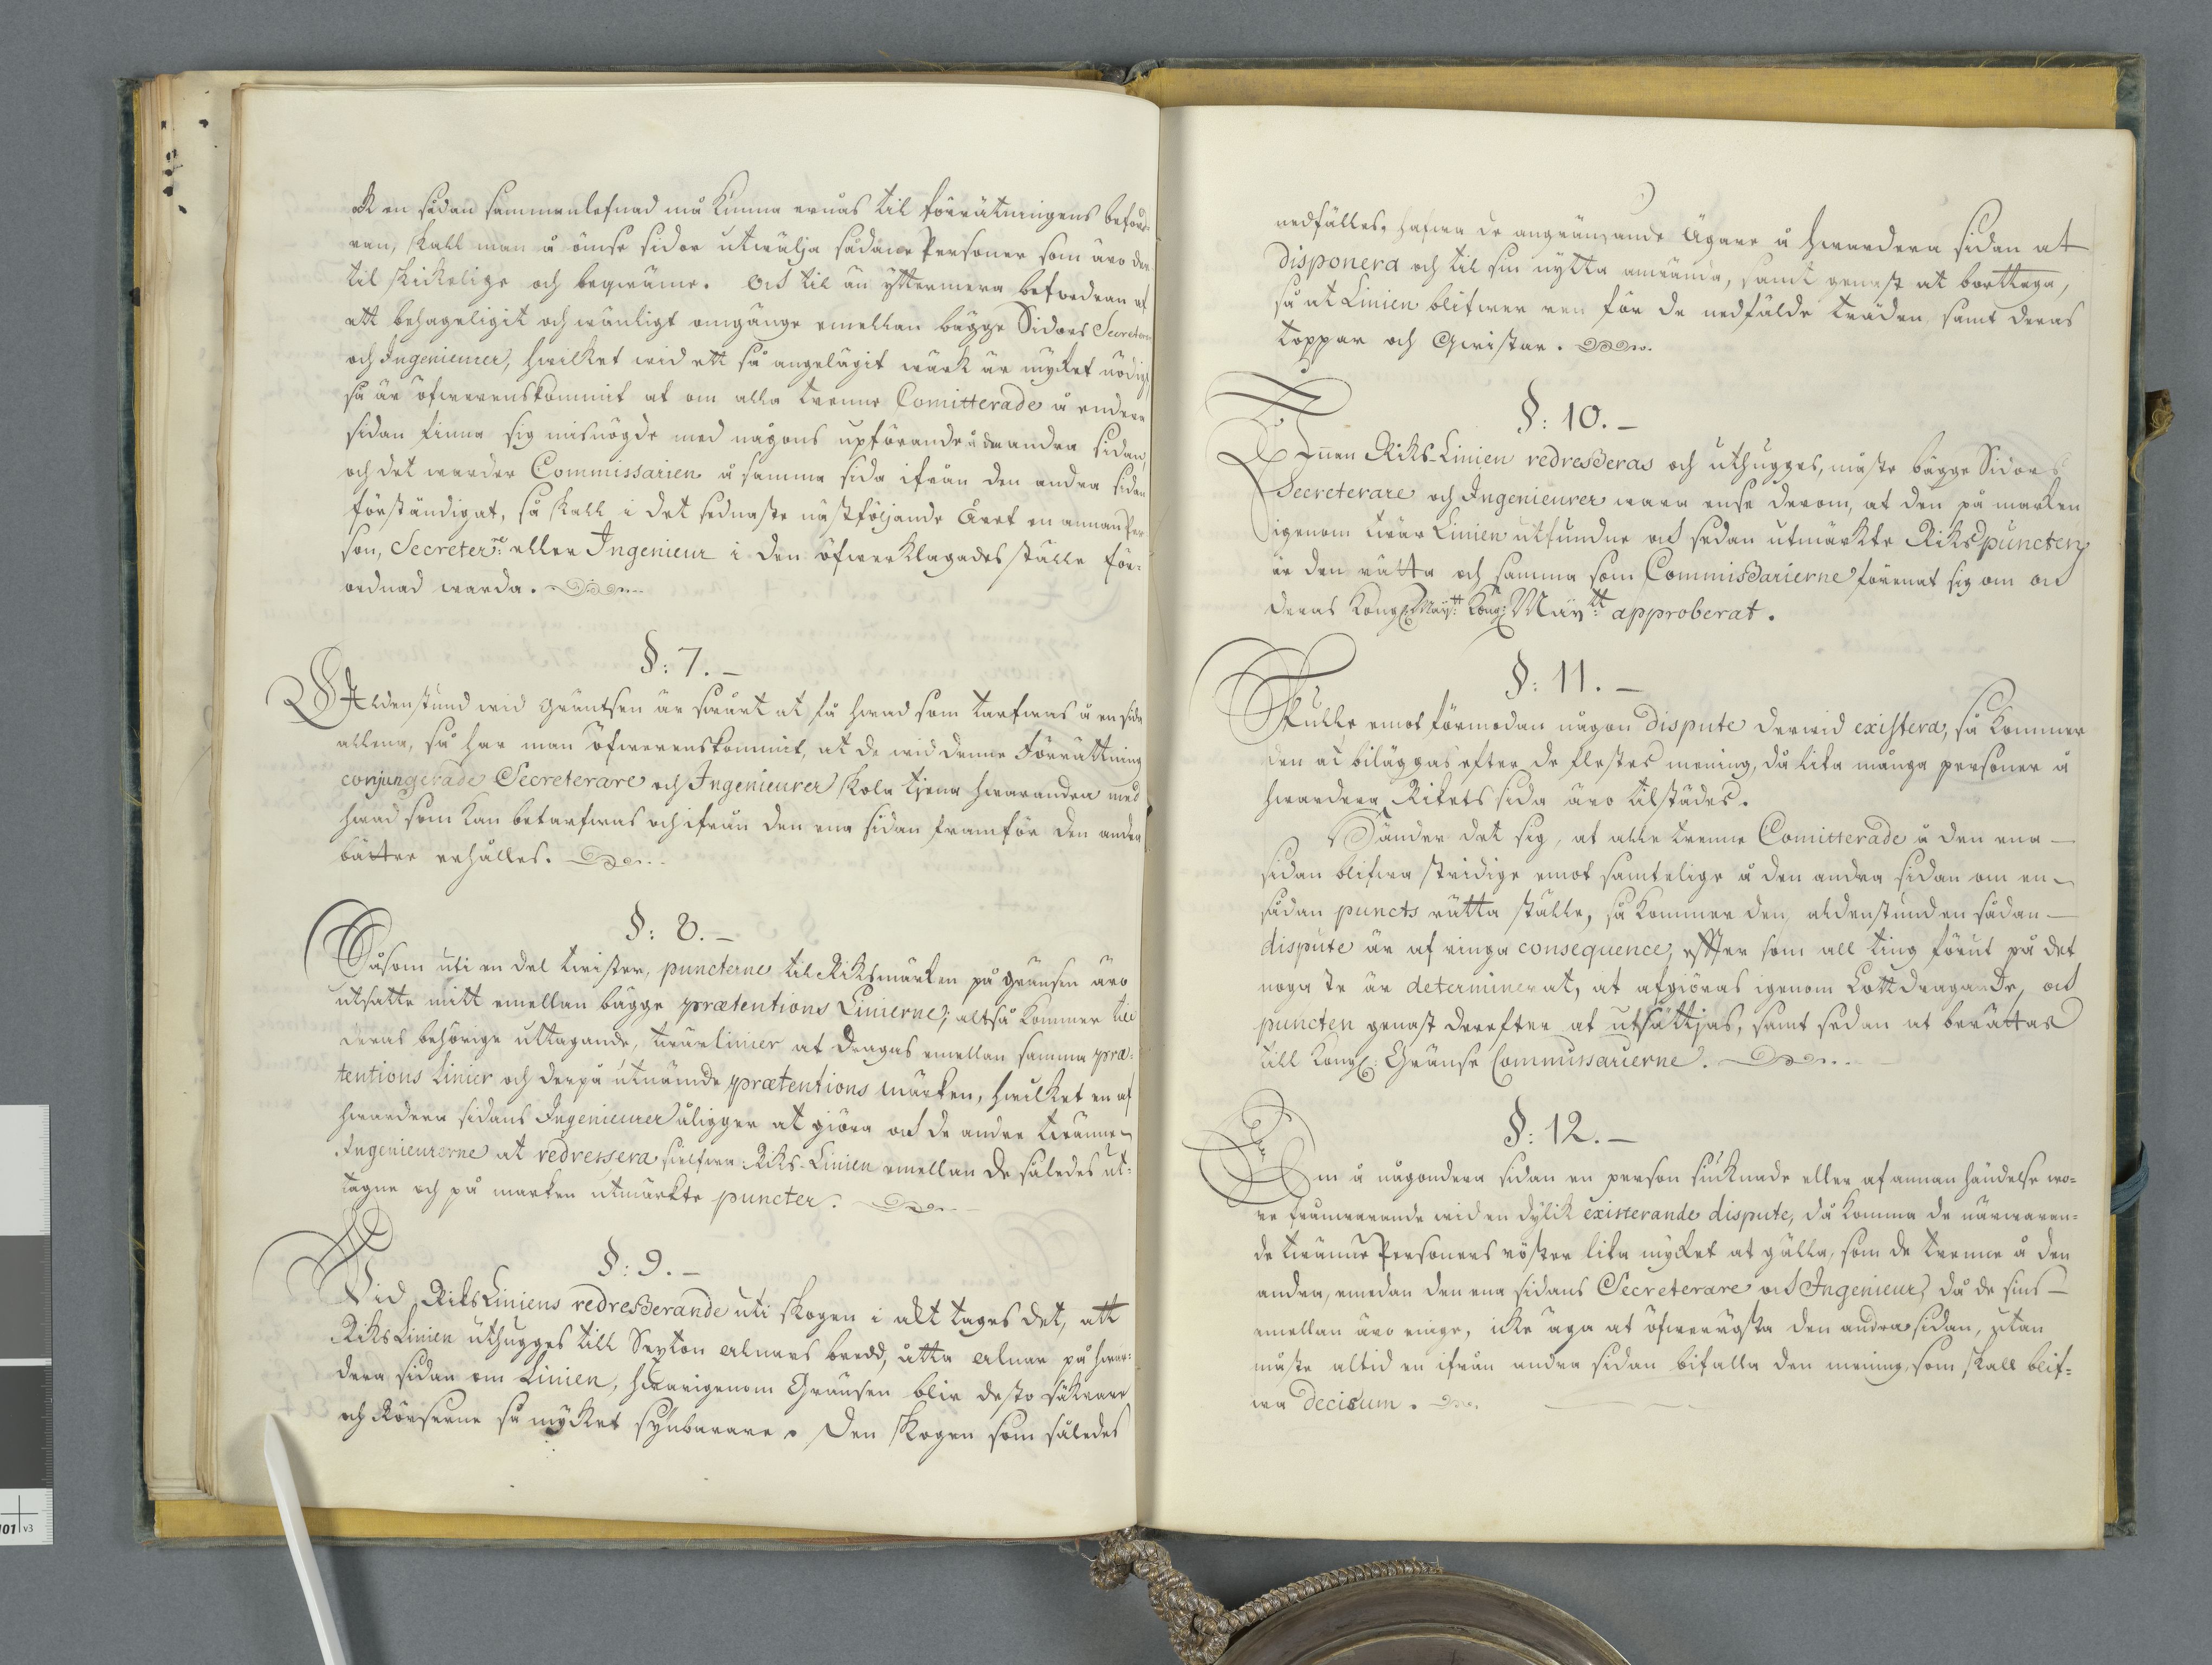 At en sådan sammanlefnad må kunna ernås til förrätningens beford-
ran, skall man å ömse sidor utwälja sådane Personer som äro der
til skickelige och beqwäme. Och til än yttermera befordran af
ett behageligit och wänligt omgänge emellan bägge Sidors Secreterare
och Ingenieurer, hwilket wid ett så angelägit wärk är mycket nödigt,
så är öfwerenskommit at om alla trenne Comitterade å endera
sidan finna sig misnögde med någons upförande å den andra sidan,
och det warder Commissarien å samma sida ifrån den andra sidan
förständigat, så skall i det sednaste nästföljande Året en annan Per
son, Secreterre: eller Ingenieur i den öfwerklagades ställe för-
ordnad warda.
§: 7.
Aldenstund wid Gräntsen är swårt at få hwad som tarfwas å en sida
allena, så har man öfwerenskommit, at de wid denne Förrättning
conjungerade Secreterare och Ingenieurer skola tjena hwarandra med
hwad som kan betarfwas och ifrån den ena sidan framför den andra
bättre erhålles.
§: 8.
Såsom uti en del twister, puncterne til Riksmärken på gränsen äro
utsatte mitt emellan bägge prætentions Linierne; altså kommer till
deras behörige uttagande, twärlinier at dragas emellan samma præ-
tentions Linier och derpå utnämde prætentions märken, hwilket en af
hwardera sidans Ingenieurer åligger at giöra och de andre twänne
Ingenieurerne at redressera sielfwa Riks-Linien emellan de således ut-
tagne och på marken utmärkte puncter.
§: 9.
Vid RiksLiniens redresserande uti skogen i akt tages det, att
RiksLinien uthugges till Sexton alnars bredd, åtta alnar på hwar-
dera sidan om Linien, hwarigenom Gränsen blir desto säkrare
och Rörserne så mycket synbarare. Den skogen som således
nedfälles, hafwa de angränsande Ägare å hwardera sidan at
disponera och til sin nytta använda, samt genast at borttaga,
så at Linien blifwer ren för de nedfälde träden samt deras
toppar och Qwistar.
§: 10.
Innan Riks-Linien redresseras och uthugges, måste bägge Sidors
Secreterare och Ingenieurer wara ense derom, at den på marken
igenom twär Linien utfundne och sedan utmärkte Rikspuncten
är den rätta och samma som Commissarierne förenat sig om och
deras Kongl: Maytt: Kong: Maytt: approberat.
§: 11.
Skulle emot förmodan någon dispute derwid existera, så kommer
den at biläggas efter de flestes mening, då lika många personer å
hwardera Rikets sida äro tilstädes.
Händer det sig, at alle trenne Comitterade å den ena
sidan blifwa stridige emot samtelige å den andra sidan om en
sådan puncts rätta ställe, så kommer den, aldenstund en sådan
dispute är af ringa consequence, efter som all ting förut på det
nogaste är determinerat, at afgiöras igenom Lottdragande, och
puncten genast derefter at utsättjas, samt sedan at berättas
till Kongl: Gränse Commissarierne.
§: 12.
Om å någondera sidan en person siucknade eller af annan händelse wo-
re frånwarande wid en dylik existerande dispute, då komma de närwaran-
de twänne Personers röster lika mycket at gälla, som de trenne å den
andra, emedan den ena sidans Secreterare och Ingenieur, då de sins
emellan äro enige, icke äga at öfwerrösta den andra sidan, utan
måste altid en ifrån andra sidan bifalla den mening, som skall blif-
wa decisum.